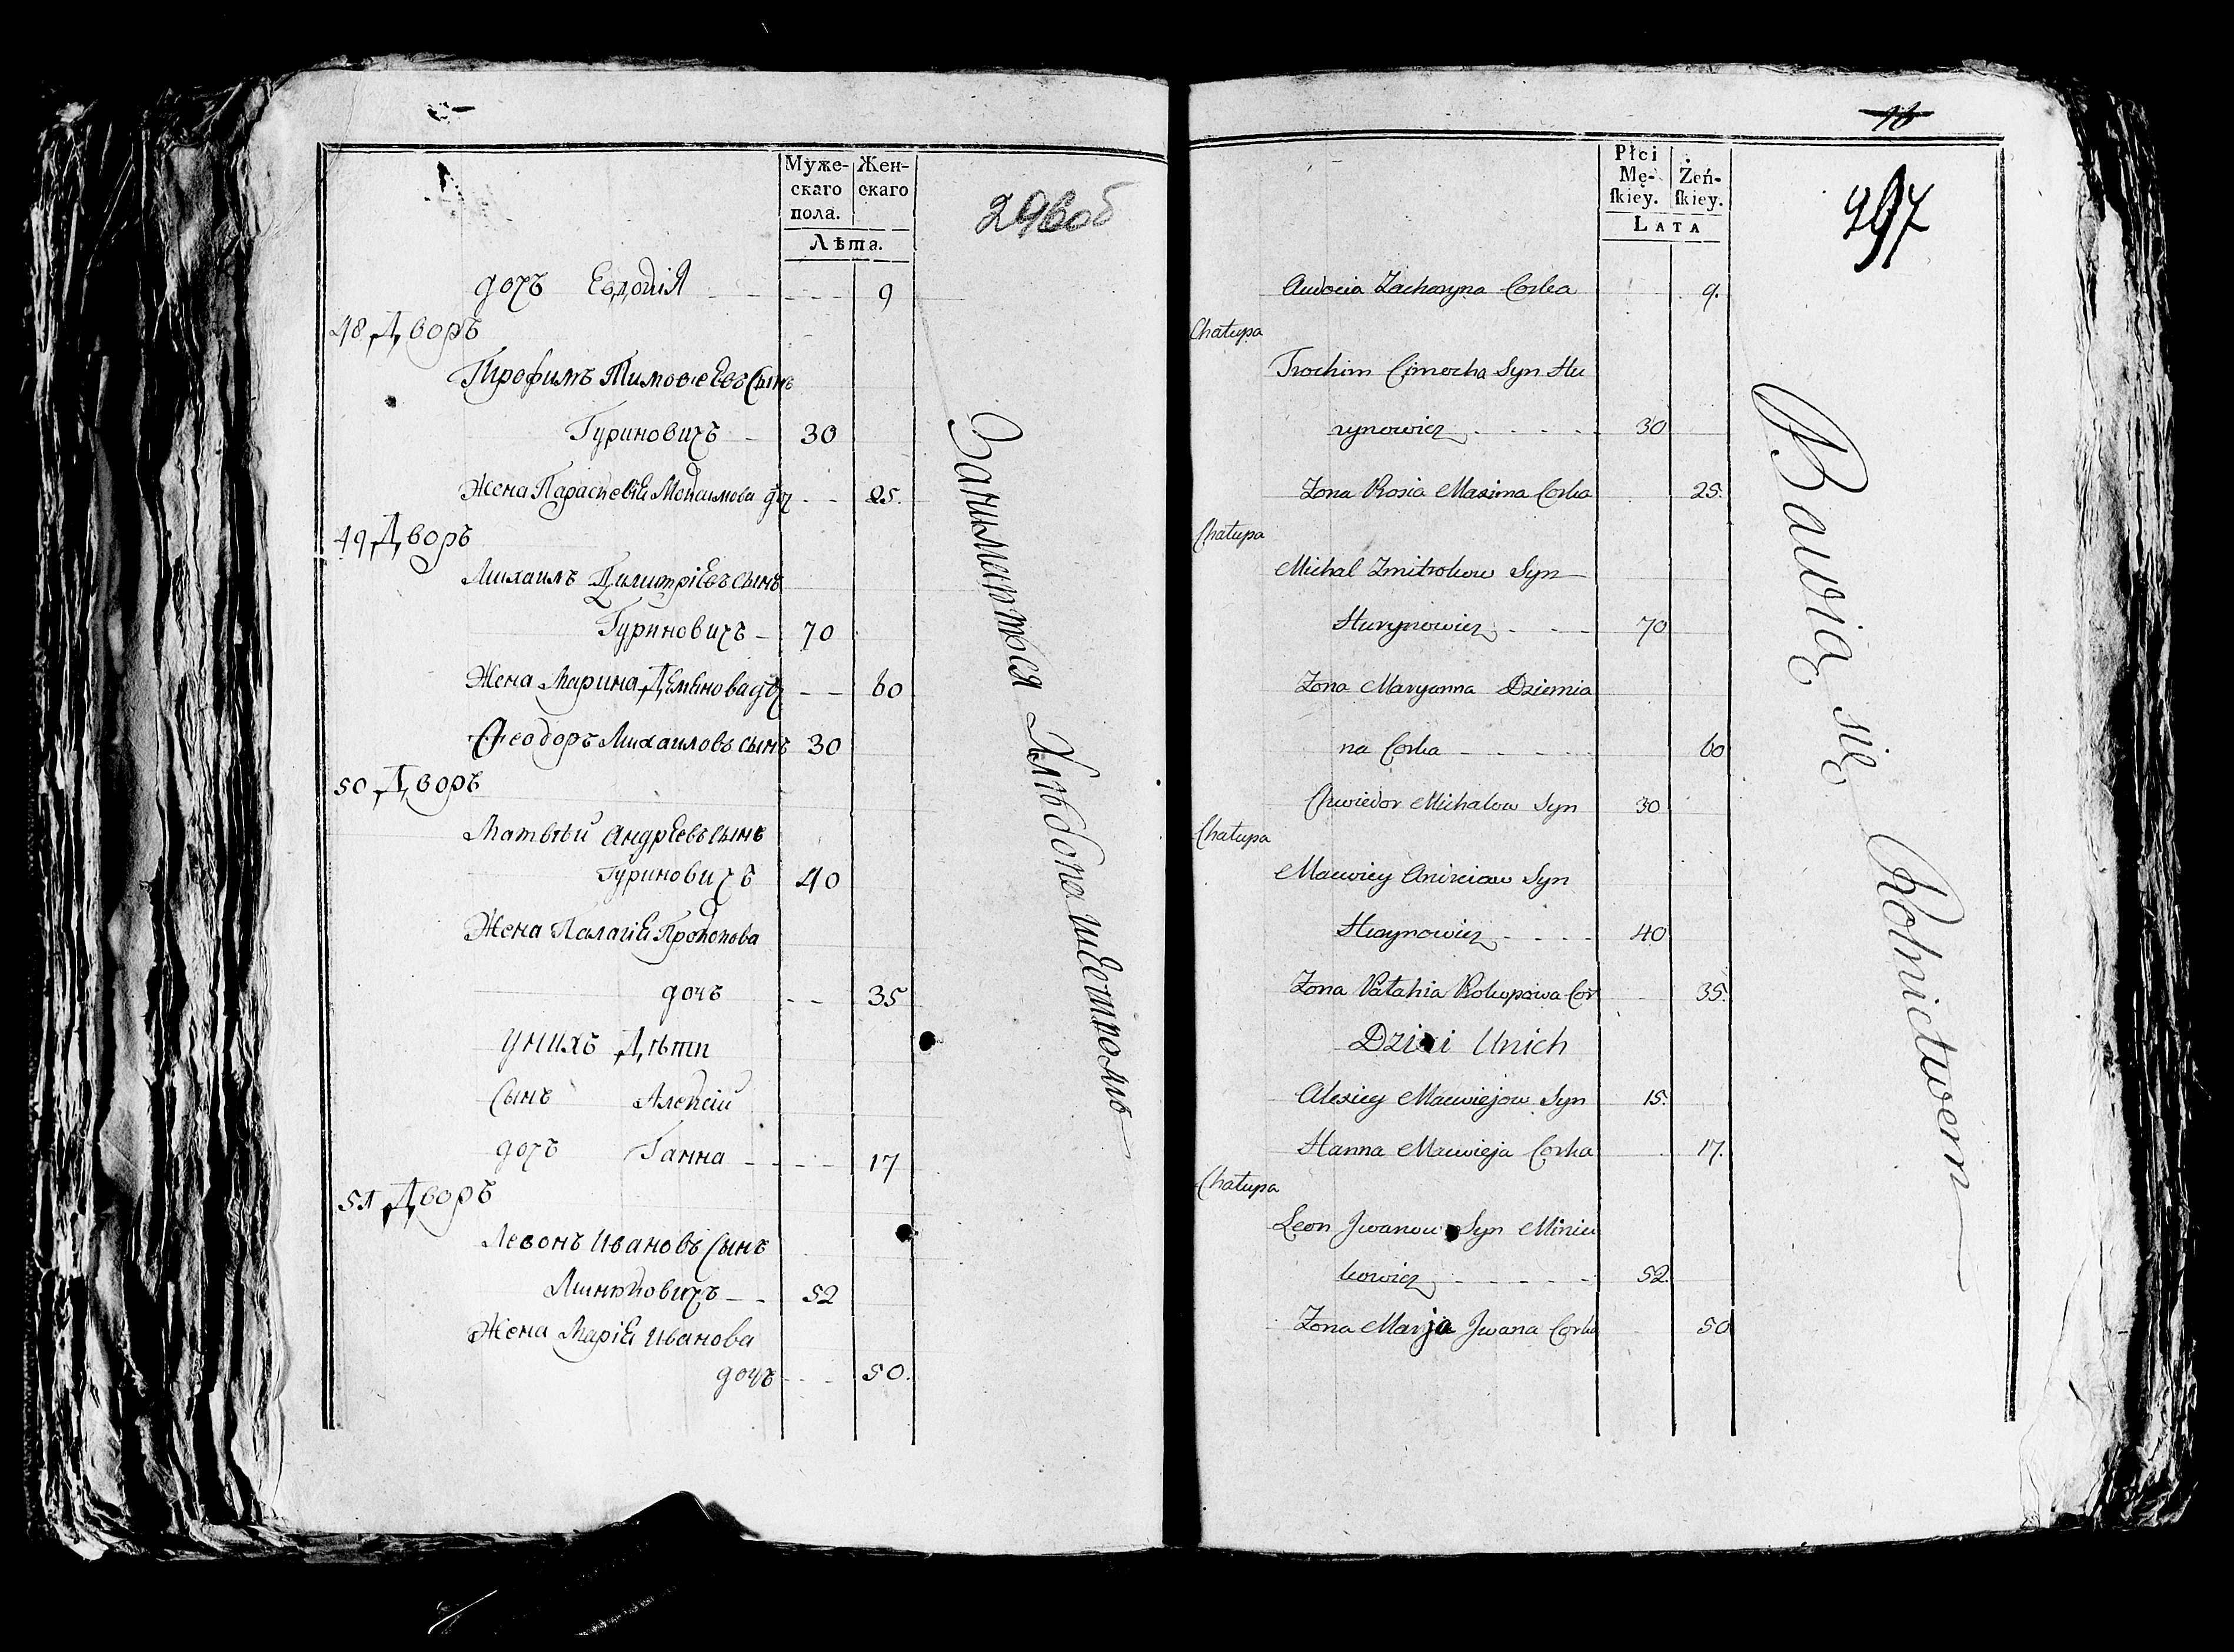 Муже-
скаго
пола.
Жен-
скаго
Лѣта.
296об
дочъ Евдокія 9
48 Дворъ
Трофимъ Тимофеевъ Сынъ
Гуриновичъ 30
Жена Параскевія Максимова доч 25.
49 Дворъ
Михаилъ Димитріевъ сынъ
Гуриновичъ 70
Жена Марина Демьянова доч 60
Феодоръ Михаиловъ сынъ 30
50 Дворъ
Матвѣй Андреевъ сынъ
Гуриновичъ 40
Жена Палагія Прокопова
дочъ 35
У нихъ Дѣти
Сынъ Алексій
дочъ Ганна 17
51 Дворъ
Левонъ Ивановъ Сынъ
Минюковичъ 52
Жена Марія Иванова
дочъ 50.
Занимаються Хлѣбопашетвомъ
16
297
Płci
Mę-
ſkiey.
Żeń-
ſkiey.
LATA
Audocia Zacharyna Corka 9.
Chałupa
Trochim Cimocha Syn Hu
rynowicz 30
Zona Rosia Maxima Corka 25.
Chałupa
Michal Zmitrokow Syn
Hurynowicz 70
Zona Maryanna Dziemia
na Corka 60
Chwiedor Michalow Syn 30
Chałupa
Maciwiey Andreiow Syn
Hurynowicz 40
Zona Pałahia Prokopowa Cor 35.
Dzieci Unich
Alexiey Maciwiejow Syn 15.
Hanna Maciwieja Corka 17.
Chałupa
Leon Jwanow Syn Miniu
kowicz 52.
Zona Marja Jwana Corka 50
Bawią się Rolnictwem